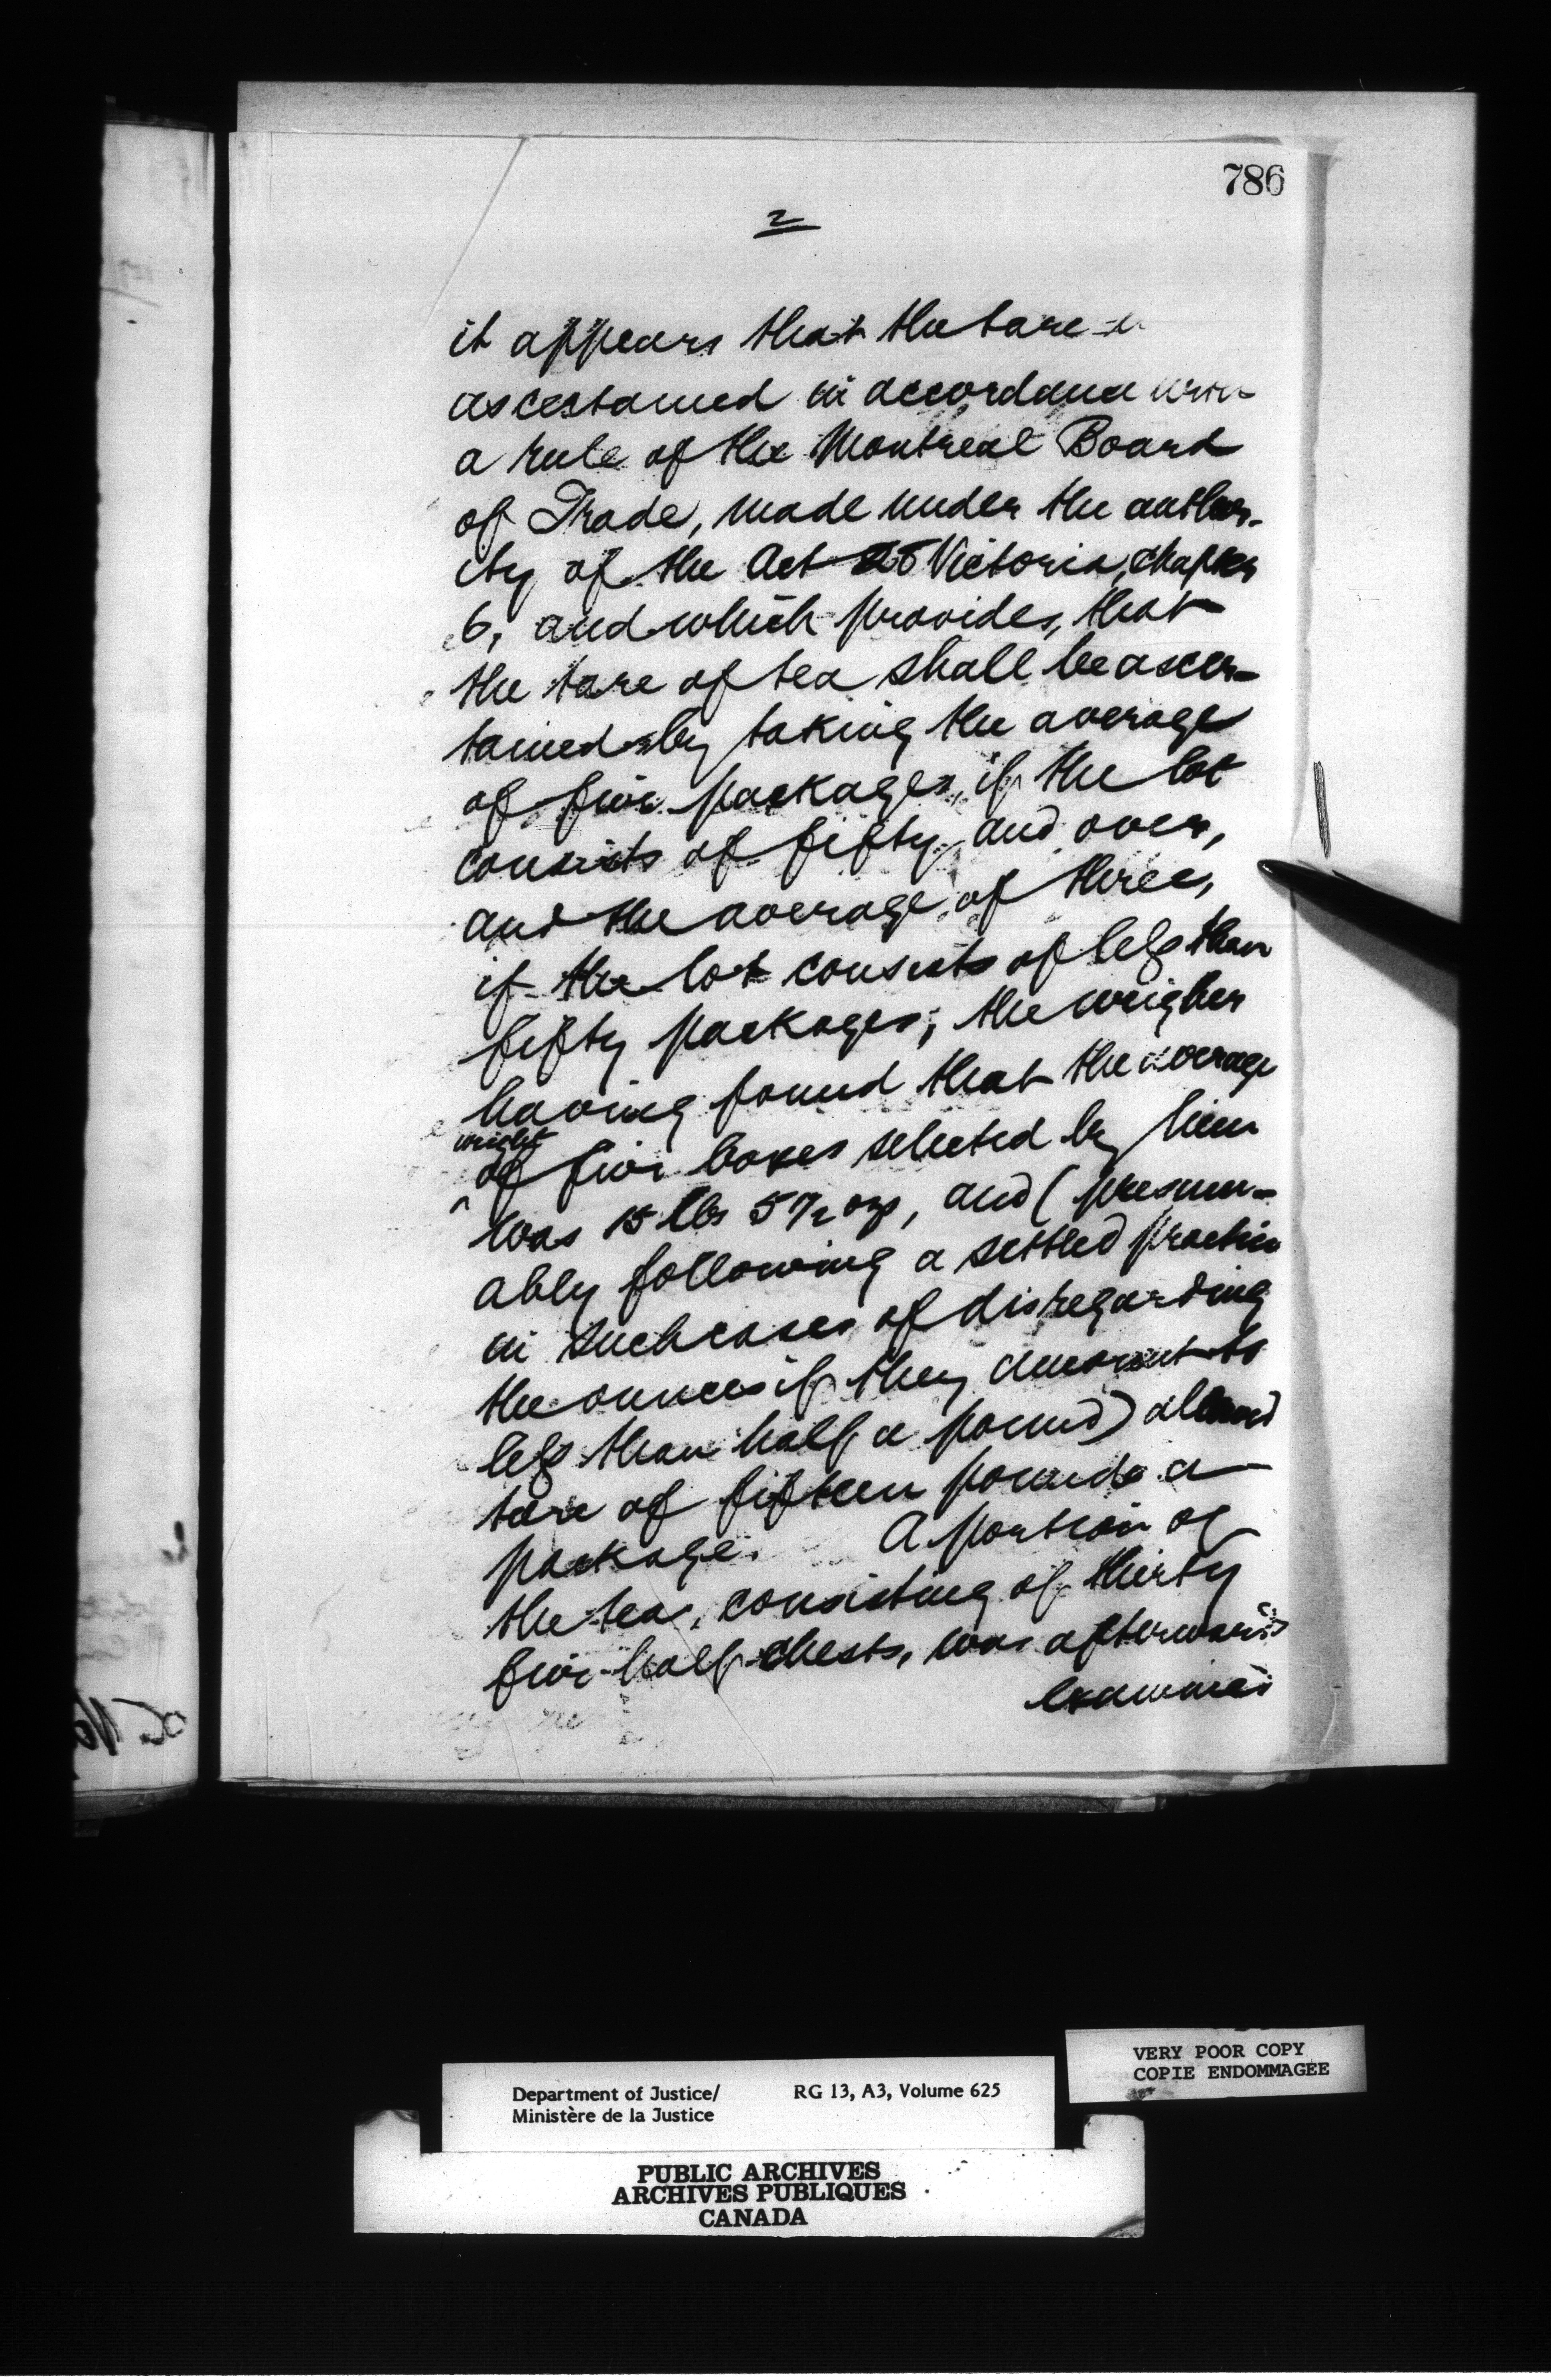 786
2
it appears that the tare
ascertained in accordance with
a rule of the Montreal Board
of Trade, made under the author-
ity of the Act Victoria, chapter
6, and which provides, that
the tare of tea shall be ascer-
tained by taking the average
of five packages, if the lot
consists of fifty and over,
and the average of three,
if the lot consists of less than
fifty packages; the weigher
having found that the average
weight
^ of five boxes selected by him
was 15 lbs 5 1/2 ozs, and (presum-
ably following a settled practice
in such cases of disregarding
the ounces if they amount to
less than half a pound) allowed
tare of fifteen pounds a
package. A portion of
the tea, consisting of thirty
five half-chests, was afterwards
examined
VERY POOR COPY
COPIE ENDOMMAGEE
Department of Justice/ RG 13, A3, Volume 625
Ministère de la Justice
PUBLIC ARCHIVES
ARCHIVES PUBLIQUES
CANADA